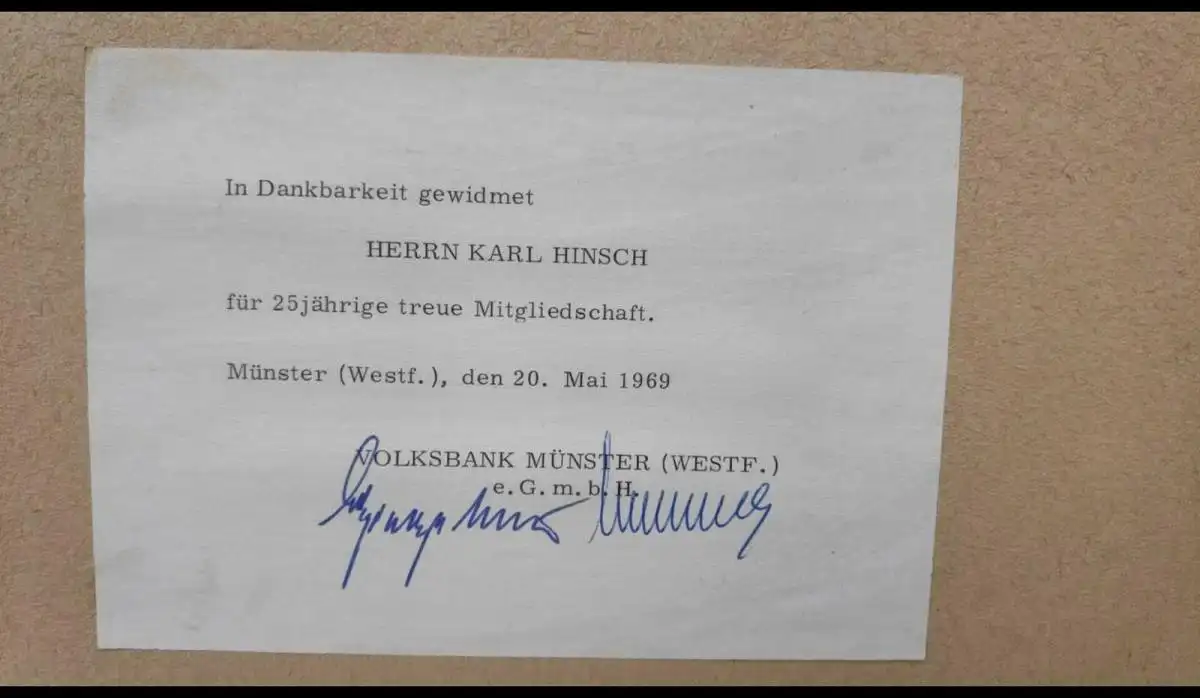 In Dankbarkeit gewidmet
HERRN KARL HINSCH
für 25jährige treue Mitgliedschaft.
Münster (Westf.), den 20. Mai 1969
VOLKSBANK MÜNSTER (WESTF.)
e.G.m.b.H.